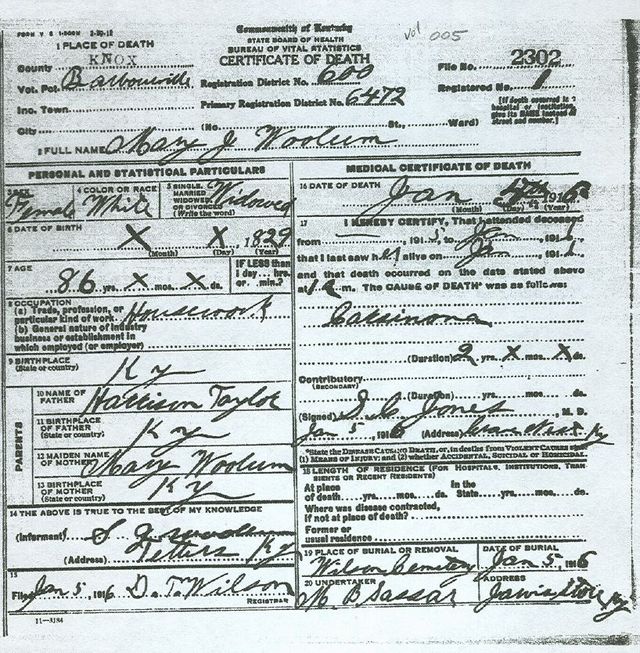 FORM V S 1-500M 2-29-12
Commonwealth of Kentucky
vol 005
STATE BOARD OF HEALTH
BUREAU OF VITAL STATISTICS
CERTIFICATE OF DEATH
1 PLACE OF DEATH
County KNOX
Vot. Pct. Barbourville
Inc. Town
City
Registration District No. 600
Primary Registration District No. 6472
(No. St., Ward)
File No. 2302
Registered No. 1
[If death occurred in a hospital or institution, give its NAME instead of street and number.]
2 FULL NAME Mary J Woolum
PERSONAL AND STATISTICAL PARTICULARS
3 SEX Female
4 COLOR OR RACE White
5 SINGLE, MARRIED WIDOWED OR DIVORCED (Write the word) Widowed
6 DATE OF BIRTH X X, 1829
(Month) (Day) (Year)
7 AGE
86 yrs. X mos. X ds.
IF LESS than 1 day ... hrs. or ... min.?
8 OCCUPATION
(a) Trade, profession, or particular kind of work Housework
(b) General nature of industry business or establishment in which employed (or employer)
9 BIRTHPLACE (State or country) Ky
PARENTS
10 NAME OF FATHER Harrison Taylor
11 BIRTHPLACE OF FATHER (State or country) Ky
12 MAIDEN NAME OF MOTHER Mary Woolum
13 BIRTHPLACE OF MOTHER (State or country) Ky
14 THE ABOVE IS TRUE TO THE BEST OF MY KNOWLEDGE
(Informant) S
(Address) Ky
15
Filed Jan 5, 1916 D. T. Wilson
REGISTRAR
11-3184
MEDICAL CERTIFICATE OF DEATH
16 DATE OF DEATH Jan 1916
(Month) (Day) (Year)
17 I HEREBY CERTIFY, That I attended deceased
from , 191 to Jan , 191
that I last saw her alive on Jan , 191
and that death occurred on the date stated above
at m. The CAUSE OF DEATH* was as follows:
Carsinoma
(Duration) 2 yrs. X mos. X ds.
Contributory (SECONDARY)
(Duration) yrs. mos. ds.
(Signed) S. C. Jones, M. D.
Jan 5, 1916 (Address) Ky
*State the DISEASE CAUSING DEATH, or, in deaths from VIOLENT CAUSES state (1) MEANS OF INJURY; and (2) whether ACCIDENTAL, SUICIDAL OR HOMICIDAL.
18 LENGTH OF RESIDENCE (FOR HOSPITALS, INSTITUTIONS, TRANSIENTS OR RECENT RESIDENTS)
At place of death yrs. mos. ds. In the State yrs. mos. ds.
Where was disease contracted, if not at place of death?
Former or usual residence
19 PLACE OF BURIAL OR REMOVAL Wilson Cemetery
DATE OF BURIAL Jan 5, 1916
20 UNDERTAKER M B Sassar
ADDRESS Ky